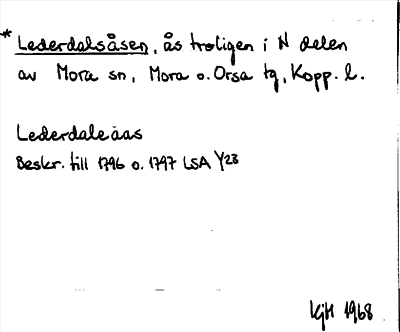 * Lederdalsåsen, ås troligen i N delen
av Mora sn, Mora o. Orsa tg, Kopp. l.
Lederdaleåas
Beskr. till 1796 o. 1797 LSA Y23
KjH 1968